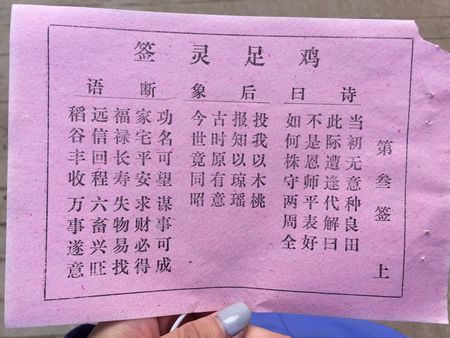 鸡足灵签
第叁签 上
诗曰
当初无意种良田
此际遭逢代解曰
不是恩师平表好
如何株守两周全
后象
投我以木桃
报知以琼瑶
古时原有意
今世竟同昭
断语
功名可望谋事可成
家宅平安求财必得
福禄长寿失物易找
远信回程六畜兴旺
稻谷丰收万事遂意